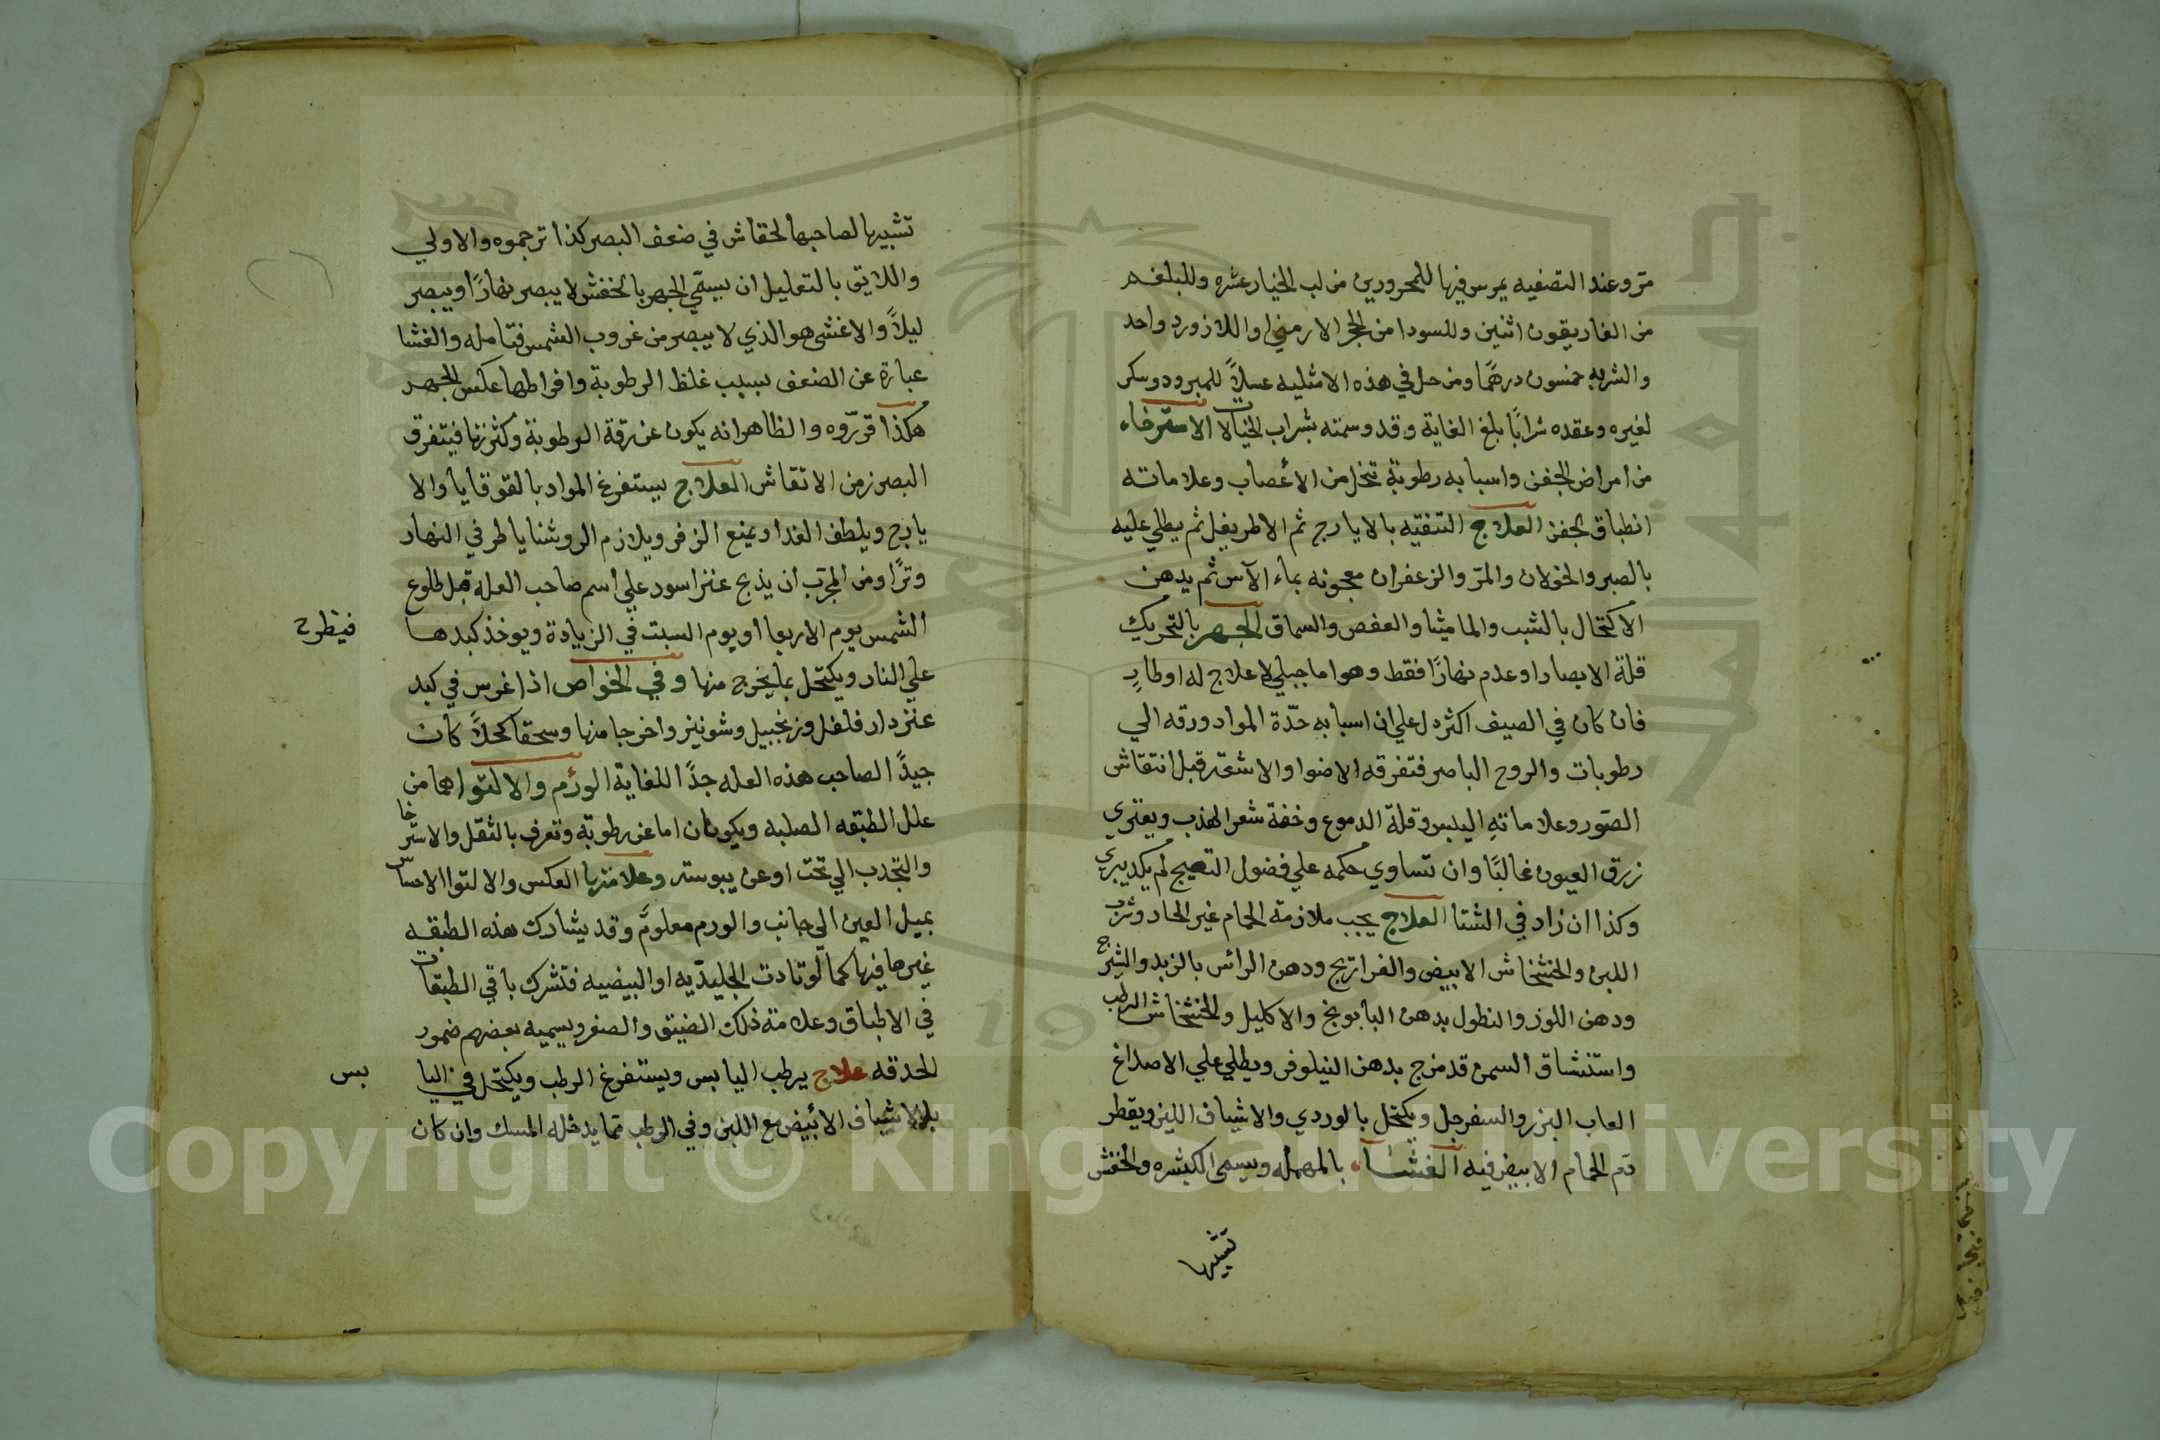 مرّ وعند التصفيه يمرس فيها للمحرورين من لب الخيار عشره وللبلغم
من الغاريقون اثنين وللسودا من الحجر الارمني او اللازورد واحد
والشربه خمسون درهمًا ومن حل في هذه الامثليه عسلاً للمبرود وسكر
لغيره وعقده شرابًا بلغ الغاية وقد وسمته بشراب الخيالات الاسترخاء
من امراض الجفن واسبابه رطوبة تنحل من الأعصاب وعلاماته
انطباق الجفن العلاج التنقيه بالايارج ثم الاطريفل ثم يطلي عليه
بالصبر والخولان والمرّ والزعفران معجونه بماء الآس ثم يدهن
الاكتحال بالشب والماميثا والعفص والسماق الجهر بالتحريك
قلة الابصار او عدم نهارًا فقط وهو اما جبلي لا علاج له او طارٍ
فان كان في الصيف اكثر دل علي ان اسبابه حدّة المواد ورقه الي
رطوبات والروح الباصر فتفرقه الاضوا والاشعة قبل انتقاش
الصّور وعلاماته اليبس وقلة الدموع وخفة شعر الهذب ويعتري
زرق العيون غالبًا وان تساوي حكمه علي فضول التهييج لم يكد يبري
وكذا ان زاد في الشتا العلاج يجب ملازمة الحمام غير الحار وشرب
اللبن والخشخاش الابيض والفراريج ودهن الرائس بالزبد والشيرج
ودهن اللوز والنطول بدهن البابونج والاكليل والخشخاش الرطب
واستنشاق السمن قد مزج بدهن النيلوفر ويطلي علي الاصداغ
لعاب البزر والسفرجل ويكتحل بالوردي والاشياف اللين ويقطر
دم الحمام الابيض فيه الغشاء بالمهمله ويسمي الكبشره والخفش
تشبيها
تشبيها لصاحبها لخفاش في ضعف البصر كذا ترجموه والاولي
واللايق بالتعليل ان يسمّي الجهر بالخفش لا يبصر نهارًا ويبصر
ليلاً والاغشي هو الذي لا يبصر من غروب الشمس فتامله والغشا
عبارة عن الضعف بسبب غلظ الرطوبة وافراطها عكس الجهر
هكذا قررّوه والظاهر انه يكون عن رقة الرطوبة وكثرتها فيتفرق
البصر زمن الانتقاش العلاج يستفرغ المواد بالقوقايا والا
يارج ويلطف الغدا ويمنع الزفر ويلازم الروشنايا طرفي النهار
وترًا ومن المجرّب ان يذبح عنز اسود علي اسم صاحب العله قبل طلوع
الشمس يوم الاربعا او يوم السبت في الزيادة ويوخذ كبدها
فيطرح
علي النار ويكتحل بما يخرج منها وفي الخواص اذا غرس في كبد
عنز دار فلفل وزنجبيل وشونيز واخرجا منها وسحقا كحلاً كان
جيدًا لصاحب هذه العله جدًا للغاية الورم والالتوا هما من
علل الطبقه الصلبه ويكونان اما عن رطوبة وتعرف بالثقل والاسترخا
والتجذب الي تحت او عن يبوسة وعلامتها العكس والالتوا الاحساس
بميل العين الي جانب والورم معلوم وقد يشارك هذه الطبقه
غيرها فيها كما لو تادت الجليديّه او البيضيه فتشرك باقي الطبقات
في الاطباق وعلامة ذلك الضيق والصغر ويسميه بعضهم ضمور
الحدقه علاج يرطب اليابس ويستفرغ الرطب ويكتحل في اليا
بس
بالاشياف الأبيض مع اللبن وفي الرطب بما يدخله المسك وان كان